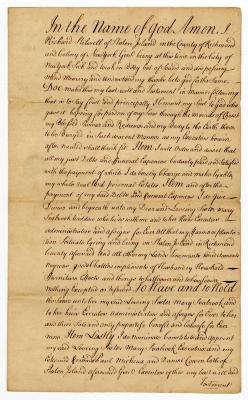 In the Name of God Amen. I
Richard Stilwell of Staten Island in the County of Richmond
and Colony of New York Gent being at this time in the City of
New York Sick and weak in Body but of sound and disposing
Mind Memory and Understanding thanks be to God for the same
Doe make this my last will and Testament in Manner following
that is to say first and principally I Commend my Soul to God who
gave it hoping for pardon of my Sins through the merits of
my Blessed Saviour and Redeemer and my Body to the Earth there
to be Buryed in such decent Manner as my Executors hereafter
named shall think fitt Item I will Order and direct that
all my just Debts and Funeral Expences be duely paid and Satisfied
with the payment of which I do hereby charge and make lyable
my whole Personal Estate Item and after the
payment of my said Debts and Funeral Expences I do give
Devise and bequeath unto my Dear and Loving Sister Mary
Seabrook widdow who lives with me and to her Heirs Executors
Administrators and assigns for Ever all that my Farm or plantation
Situate lying and being on Staten Island in Richmond
County aforesaid And all other my Lands Tenements
Negroes goods Chattles
Furniture Stock and things of whatsoever
nothing Excepted or reserved To Have and to hold
the same unto her my said Loving Sister Mary Seabrook and
to her heirs Executors Administrators and assigns for Ever to her
and their Sole and only proper use benefit and behoofe for Ever
more Item Lastly I do Nominate Constitute and appoint
my said Loving Sister Mary Seabrook Executrix and my
Esteemed Friends Paul and Daniel Corsen both of
Staten Island aforesaid Gent Executors of this my last will and
Testament